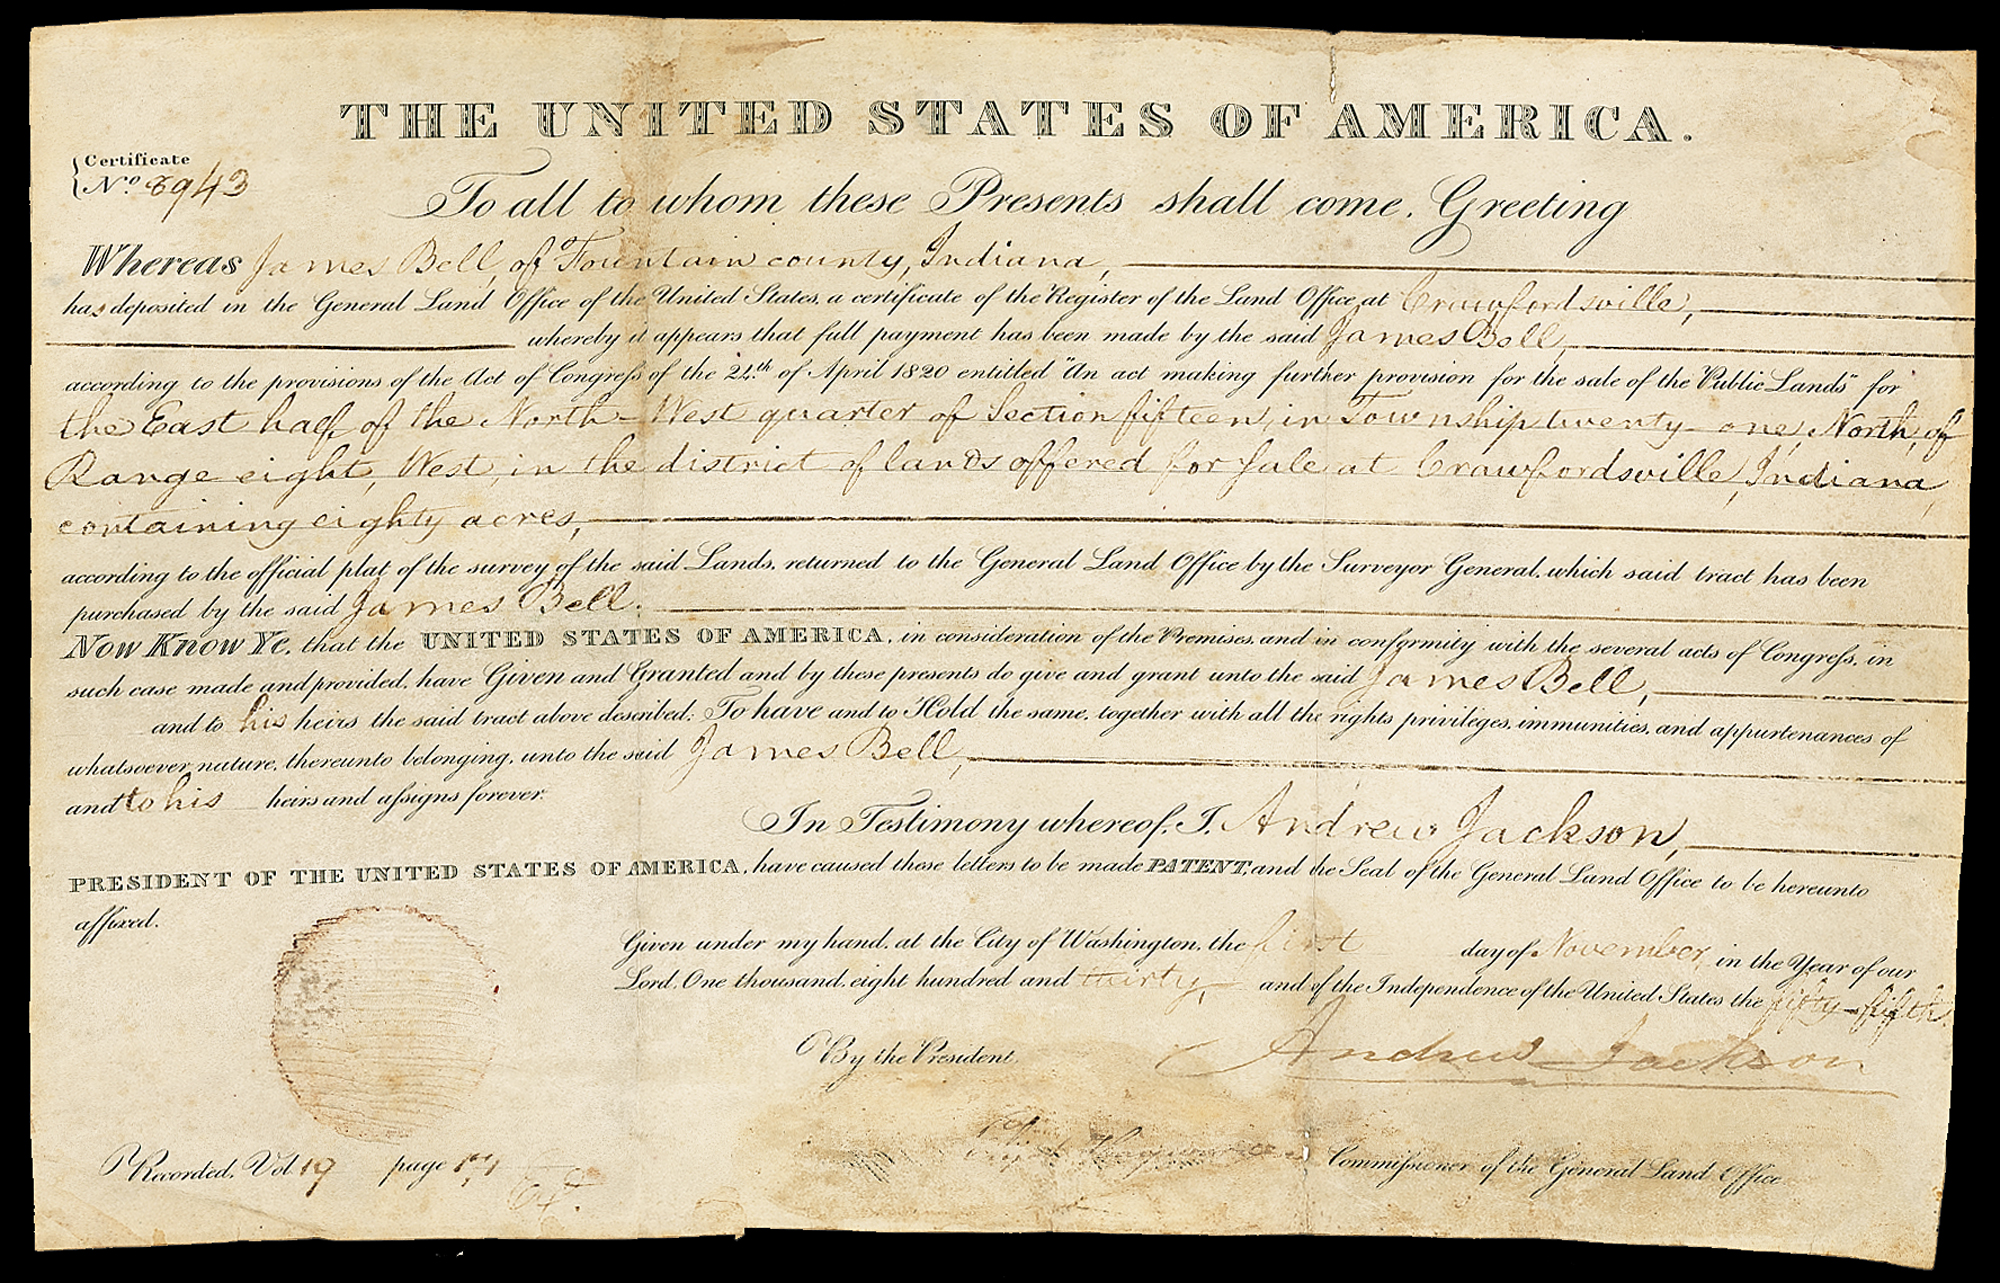 THE UNITED STATES OF AMERICA.
Certificate
No. 8943
To all to whom these Presents shall come, Greeting
Whereas James Bell, of Fountain county, Indiana,
has deposited in the General Land Office of the United States, a certificate of the Register of the Land Office at Crawfordsville,
whereby it appears that full payment has been made by the said James Bell,
according to the provisions of the Act of Congress of the 24th. of April 1820 entitled "An act making further provision for the sale of the Public Lands" for
the East half of the North-West quarter of Section fifteen, in Township twenty-one, North, of
Range eight, West, in the district of lands offered for sale at Crawfordsville, Indiana,
containing eighty acres,
according to the official plat of the survey of the said Lands, returned to the General Land Office by the Surveyor General, which said tract has been
purchased by the said James Bell.
Now Know Ye, that the UNITED STATES OF AMERICA, in consideration of the Premises, and in conformity with the several acts of Congress, in
such case made and provided, have Given and Granted and by these presents do give and grant unto the said James Bell,
and to his heirs the said tract above described: To have and to Hold the same, together with all the rights privileges, immunities, and appurtenances of
whatsoever nature, thereunto belonging, unto the said James Bell,
and to his heirs and assigns forever.
In Testimony whereof, I, Andrew Jackson,
PRESIDENT OF THE UNITED STATES OF AMERICA, have caused these letters to be made PATENT, and the Seal of the General Land Office to be hereunto
affixed.
Given under my hand, at the City of Washington, the first day of November, in the Year of our
Lord, One thousand, eight hundred and thirty, and of the Independence of the United States the fifty-fifth.
By the President, Andrew Jackson
Commissioner of the General Land Office
Recorded, Vol. 19 page